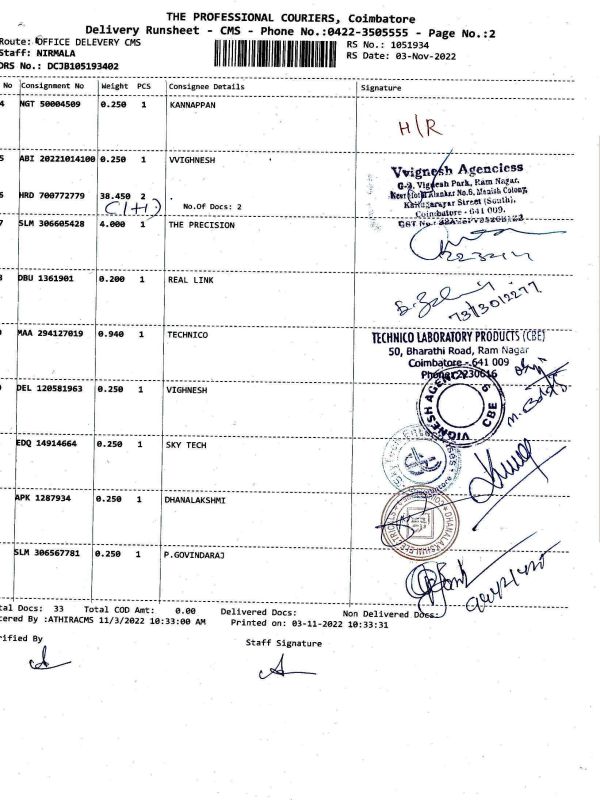 THE PROFESSIONAL COURIERS, Coimbatore
Delivery Runsheet - CMS - Phone No.:0422-3505555 - Page No.:2
Route: OFFICE DELEVERY CMS
RS No.: 1051934
Staff: NIRMALA
RS Date: 03-Nov-2022
DRS No.: DCJB105193402
No Consignment No Weight PCS Consignee Details Signature
4 NGT 50004509 0.250 1 KANNAPPAN
H/R
5 ABI 20221014100 0.250 1 VVIGHNESH
Vvignesh Agenciess
G-2, Vignesh Park, Ram Nagar,
No.6, Manish Colony,
Street (South),
Coimbatore - 641 009.
GST No.
6 HRD 700772779 38.450 2 No.Of Docs: 2
(1+1)
7 SLM 306605428 4.000 1 THE PRECISION
8 DBU 1361901 0.200 1 REAL LINK
7373012277
MAA 294127019 0.940 1 TECHNICO
TECHNICO LABORATORY PRODUCTS (CBE)
50, Bharathi Road, Ram Nagar
Coimbatore - 641 009
Phone: 2230616
DEL 120581963 0.250 1 VIGHNESH
VIGNESH AGENCIES CBE
EDQ 14914664 0.250 1 SKY TECH
APK 1287934 0.250 1 DHANALAKSHMI
DHANALAKSHMI ELECTRICALS
SLM 306567781 0.250 1 P.GOVINDARAJ
tal Docs: 33 Total COD Amt: 0.00 Delivered Docs: Non Delivered Docs:
tered By :ATHIRACMS 11/3/2022 10:33:00 AM Printed on: 03-11-2022 10:33:31
rified By
Staff Signature